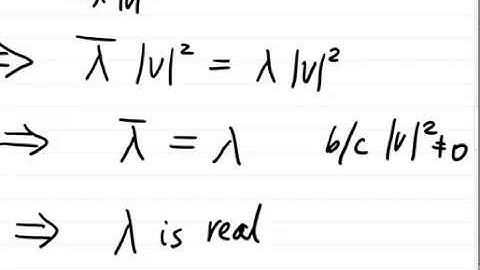 λ|v|
⇒ λ̅ |v|² = λ |v|²
⇒ λ̅ = λ b/c |v|² ≠ 0
⇒ λ is real